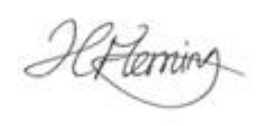 H Fleming